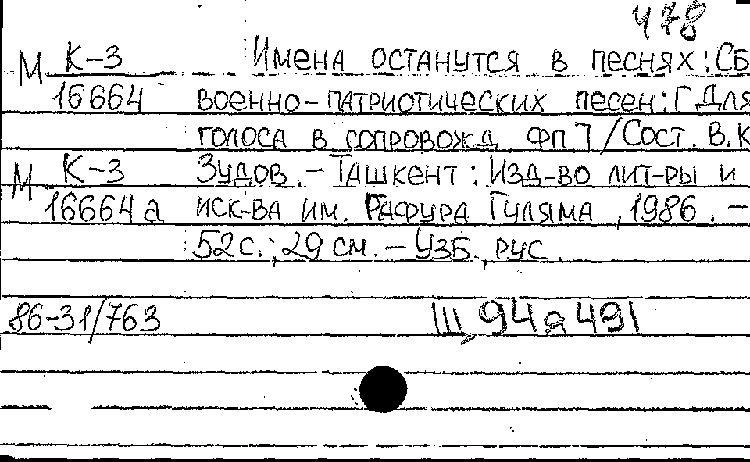 478
М К-3 Имена останутся в песнях: Сб
16664 военно-патриотических песен: [Для
голоса в сопровожд. фп.] / Сост. В.К
М К-3 Зудов. - Ташкент: Изд-во лит-ры и
16664а иск-ва им. Гафура Гуляма, 1986. -
52 с.; 29 см. - Узб., рус.
86-31/763 Щ94я491